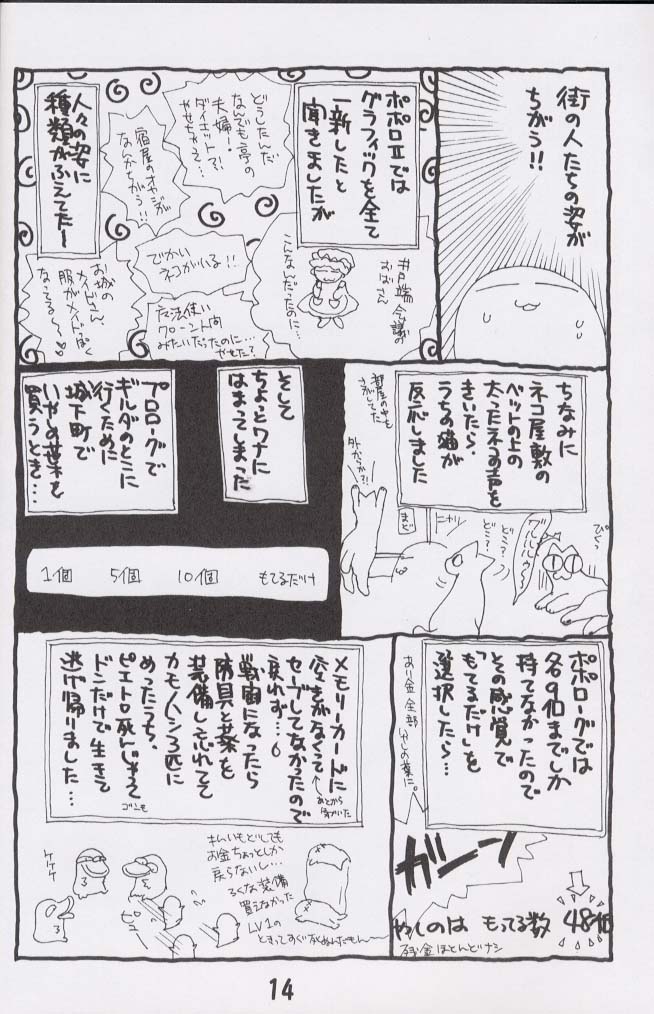 街の人たちの姿が
ちがう!!
ポポロⅡでは
グラフィックを全て
一新したと
聞きましたが
井戸端会議の
おばさん
こんなんだったのに…
どうしたんだ
なんでも亭の
夫婦!
ダイエット?!
やせちゃって…
宿屋のオヤジが
なんかちがう!!
でかい
ネコがいる!!
魔法使い
みたいだったのに…
やせた?
お城の
メイドさん、
服がメイドっぽく
なってる〜
人々の姿に
種類がふえてた〜
ちなみに
ネコ屋敷の
ベットの上の
太ったネコの声を
きいたら、
うちの猫が
反応しました
ぴくっ
グルルルゥ〜
どこ?
どこ?
ニャッ
まど
外かっか?!
部屋の中も
さがしてた
そして
ちょっとワナに
はまってしまった
プロローグで
ギルダのとこに
行くために
城下町で
いやしの葉を
買うとき…
1個 5個 10個 もてるだけ
ポポローグでは
各9個までしか
持てなかったので
その感覚で
「もてるだけ」を
選択したら…
あり金全部いやしの葉に。
ガーン
やしのは もってる数 48個
残金ほとんどナシ
メモリーカードに
空きがなくて
セーブしてなかったので
戻れず…
あとから
気がついた
戦闘になったら
防具と葉を
装備し忘れてて
カモノハシ3匹に
めったうち、
ピエトロ死んじゃって
ドンだけで生きて
逃げ帰りました…
ゴンも
お金ちょっとしか
戻らないし…
ろくな装備
買えなかった
LV1の
ケケケ
ピュー
14